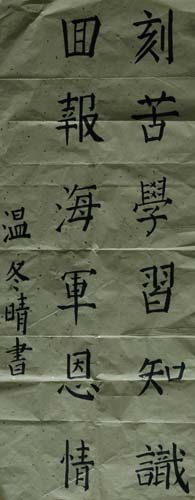 刻苦學習知識
回報海軍恩情
温冬晴書